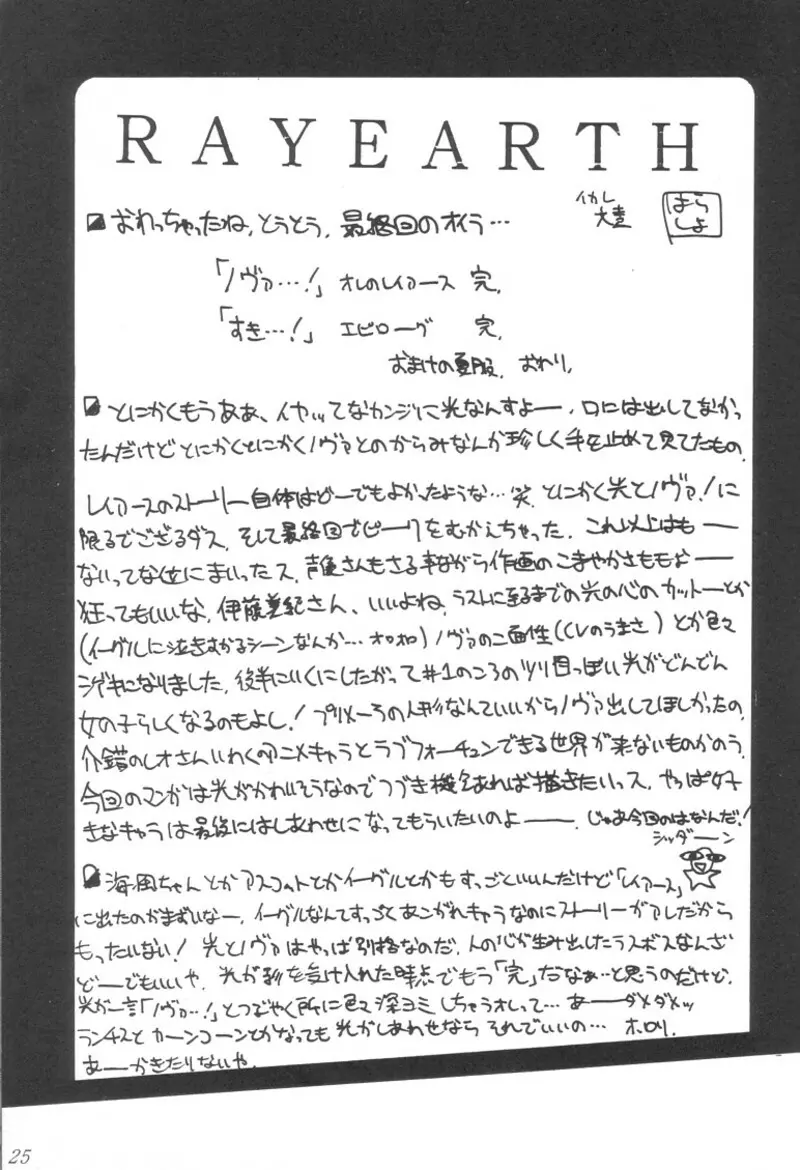 RAYEARTH
イカレ
大王
はら
しょ
おわっちゃったね, とうとう, 最終回のオイラ…
「ノヴァ…!」 オレのレイアース 完,
「すき…!」 エピローグ 完,
おまけの夏服, おわり,
とにかくもうああ、イヤッってなカンジに光なんすよー, 口には出してなかっ
たんだけどとにかくとにかくノヴァとのからみなんか珍しく手を止めて見てたもの,
レイアースのストーリー自体はどーでもよかったような…笑, とにかく光とノヴァ!に
限るでござるダス, そして最終回でピークをむかえちゃった, これ以上はも―
ないってな位にまいったス, 声優さんもさる事ながら作画のこまやかさももお―
狂ってもいいな, 伊藤美紀さん、いいよね, ラストに至るまでの光の心のカットーとか
(イーグルに泣きむかるシーンなんか…オロオロ)ノヴァの二面性(CVのうまさ)とか色々
シゲキになりました, 後半にいくにしたがって#1のころのツリ目っぽい光がどんどん
女の子らしくなるのもよし! プリメーラの人形なんていいからノヴァ出してほしかったの,
介錯のしオさんいわくのアニメキャラとラブフォーチュンできる世界が来ないものかのう,
今回のマンガは光がかわいそうなのでつづき機会あれば描きたいっス, やっぱ好
きなキャラは最後にはしあわせになってもらいたいのよ――, じゃあ今回のはなんだ!
ジッダーン
海風ちゃんとかアスコットとかイーグルとかもすっごといいんだけど「レイアース」
に出たのがまずいなー, イーグルなんてすっごくあこがれキャラなのにストーリーがアレだから
もったいない! 光とノヴァはやっぱ別格なのだ, 人の心が生み出したラスボスなんざ
どーでもいいや, 光が影を受け入れた時点でもう「完」だなぁ…と思うのだけど,
光が一言「ノヴァ…!」とつぶやく所に色々深ヨミしちゃうオレって… あーダメダメッ
ランチスと カーンコーンとかなっても光がしあわせなら それでいいの… ホロリ,
あーかきたりないや,
25